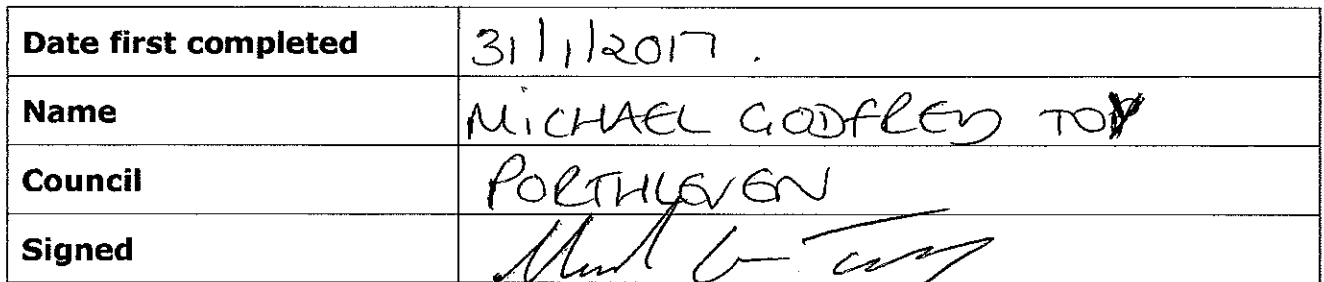 Date first completed 31/1/2017.
Name MICHAEL GODFREY TOY
Council PORTHLEVEN
Signed